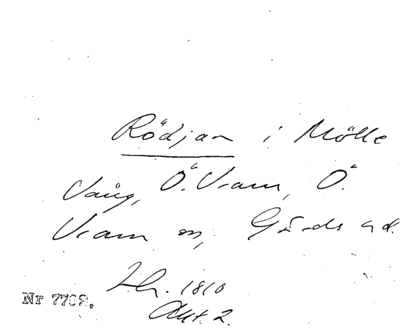 Rödjan i Mölle
Vång, Ö. Vram, Ö.
Vram sn, Gärds hd.
Lh. 1810
Akt. 2.
Nr 7792.